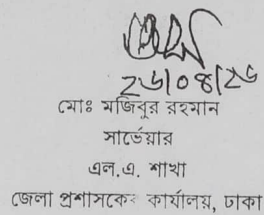 ২৬/০৪/২৬
মোঃ মজিবুর রহমান
সার্ভেয়ার
এল.এ. শাখা
জেলা প্রশাসকের কার্যালয়, ঢাকা